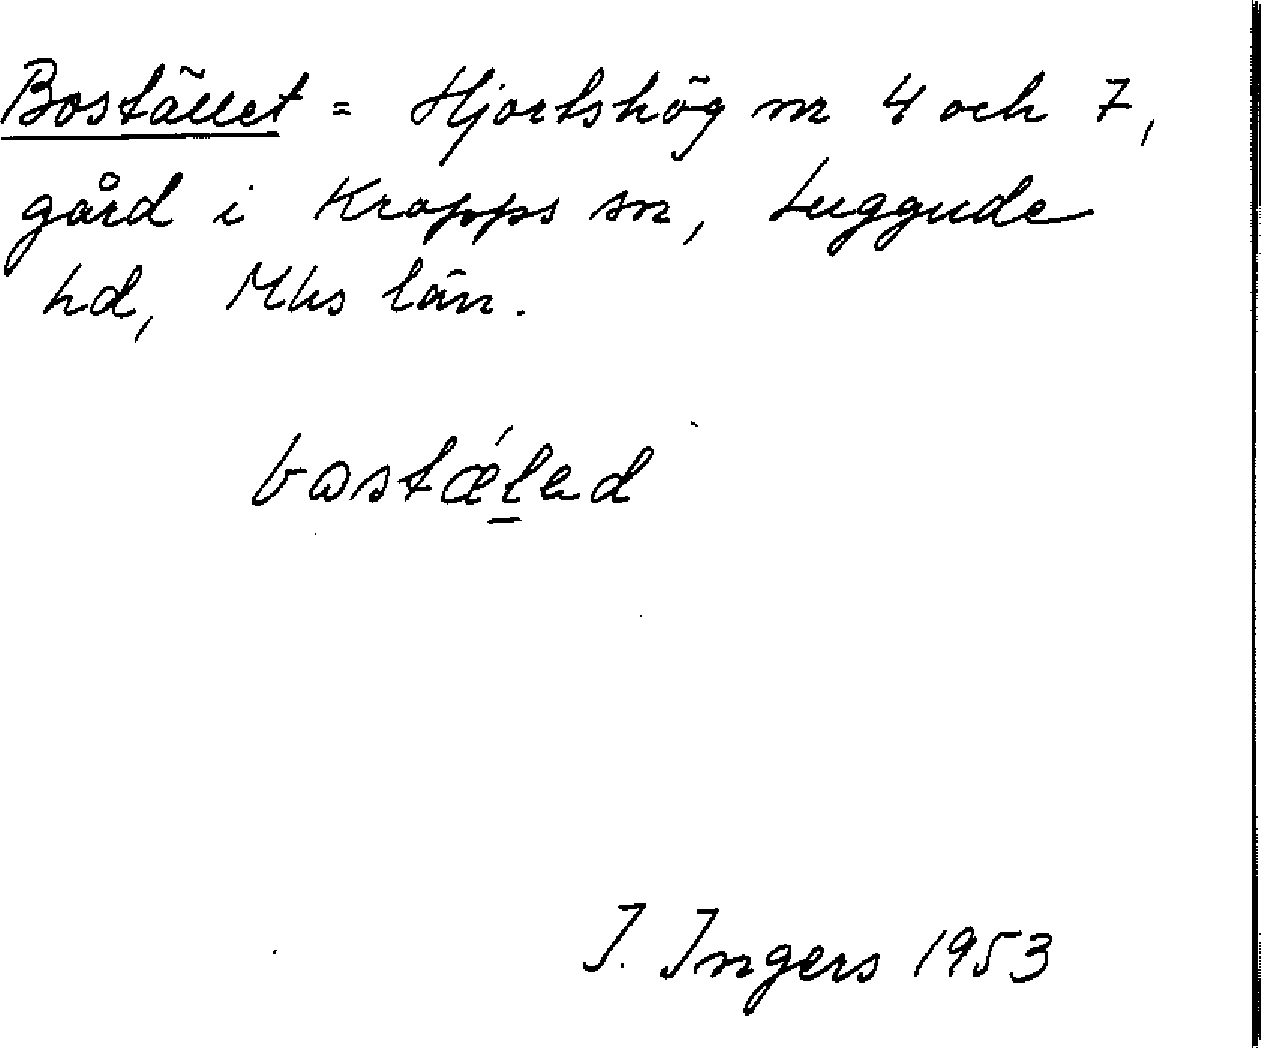 Bostället = Hjortshög nr 4 och 7,
gård i Kropps sn, Luggude
hd, Mhs län.
bostǽled
I. Ingers 1953